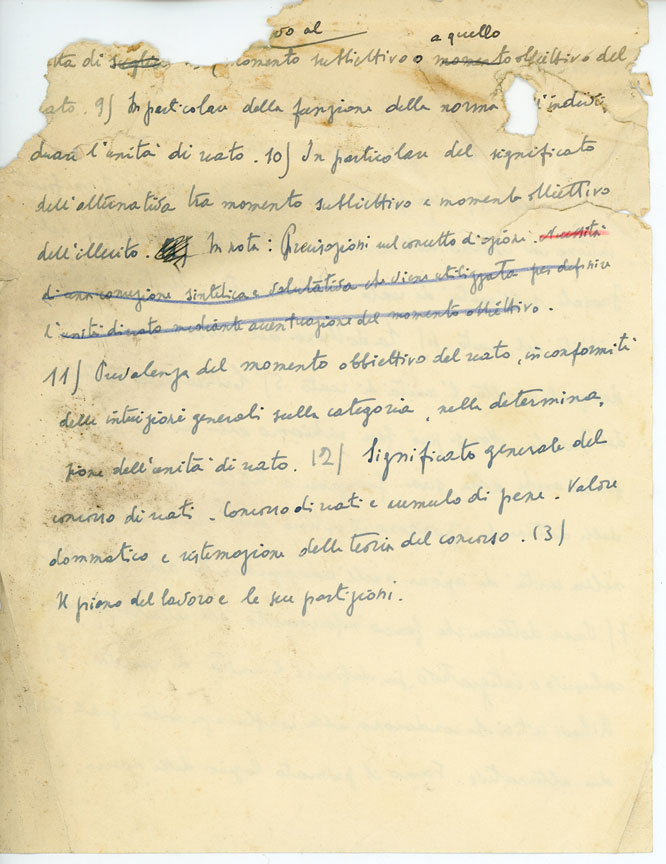 vo al a quello
momento subbiettivo o momento obbiettivo del
9) In particolare della funzione della norma
duare l'unità di reato. 10) In particolare del significato
dell'alternativa tra momento subbiettivo e momento obbiettivo
dell'illecito. In nota: Precisazioni sul concetto di azione. Necessità
di una concezione sintetica e valutativa che viene utilizzata per definire
l'unità di reato mediante accentuazione del momento obbiettivo.
11) Prevalenza del momento obbiettivo del reato, in conformità
delle intuizioni generali sulla categoria, nella determina,
zione dell'unità di reato. 12) Significato generale del
concorso di reati. Concorso di reati e cumulo di pene. Valore
dommatico e sistemazione della teoria del concorso. 13)
Il piano del lavoro e le sue partizioni.